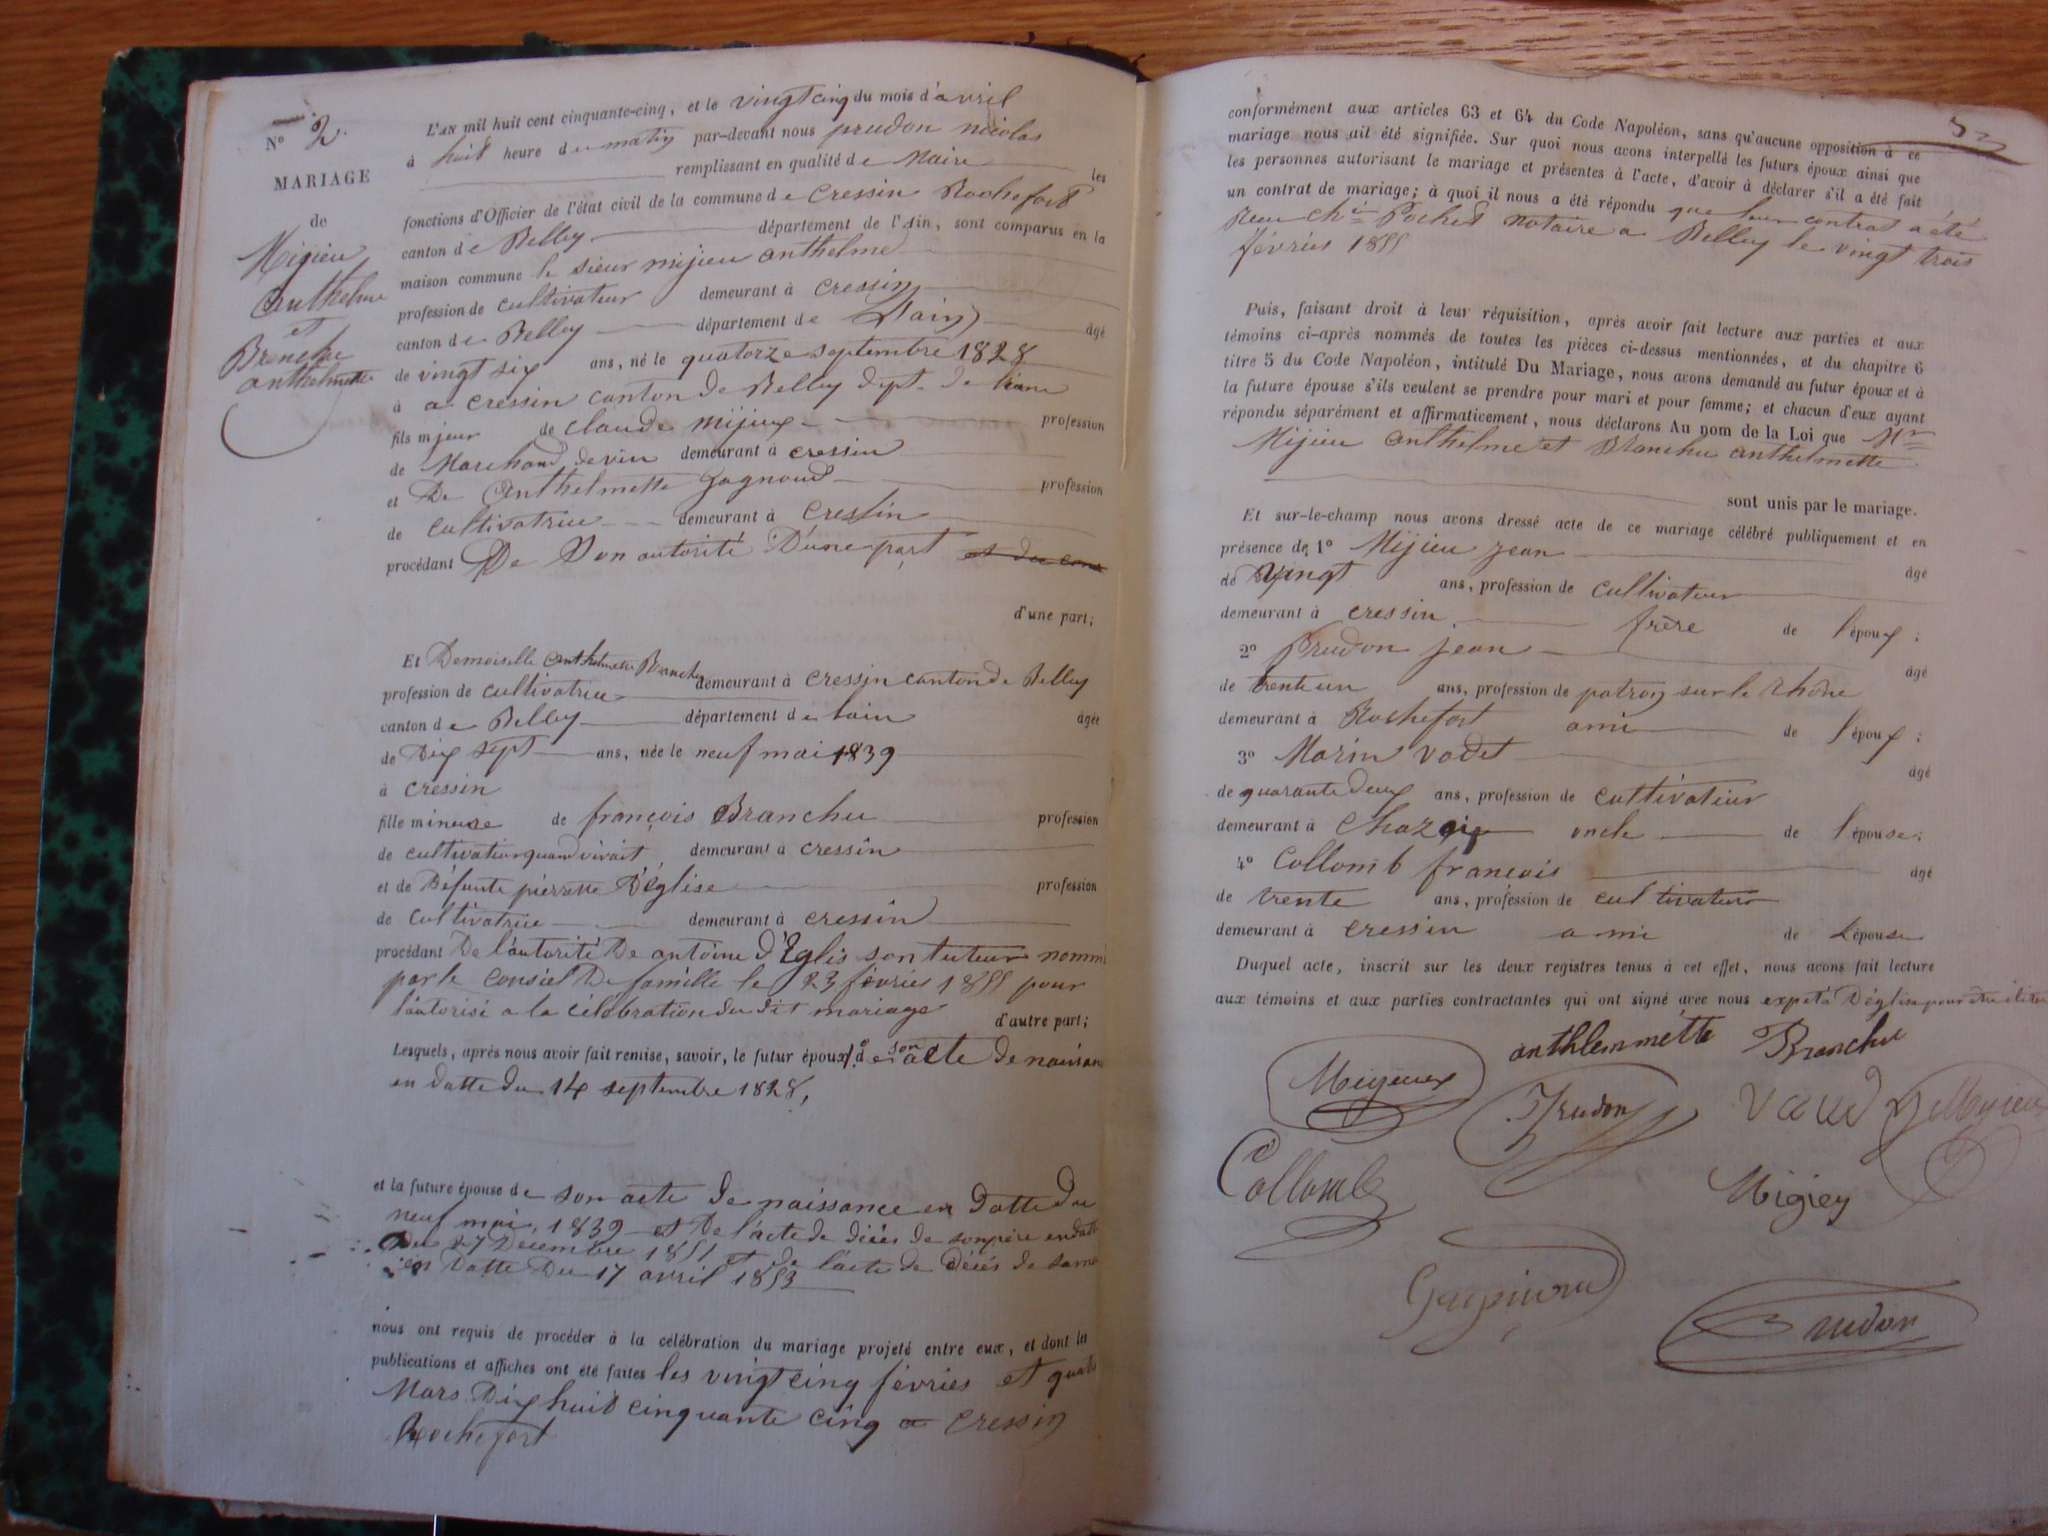 N° 2.
MARIAGE
de
Migieu
Anthelme
et
Branchu
anthelmette
L'AN mil huit cent cinquante-cinq, et le vingt cinq du mois d'avril
à huit heure du matin par-devant nous prudon nicolas
remplissant en qualité de Maire les
fonctions d'Officier de l'état civil de la commune de Cressin Rochefort
canton de Belley département de l'Ain, sont comparus en la
maison commune le sieur mijieu anthelme
profession de cultivateur demeurant à cressin
canton de Belley département de Lain âgé
de vingt six ans, né le quatorze septembre 1828
à a cressin canton de Belley dept. de
fils mjeur de claude mijieux profession
de Marchand de vin demeurant à cressin
et De Anthelmette Gagnoud profession
de cultivatrice demeurant à Cressin
procédant De Son autorité D'une part
d'une part;
Et Demoiselle Anthelmette Branchu demeurant à cressin canton de Belley
profession de cultivatrice
canton de Belley département de lain âgée
de Dix sept ans, née le neuf mai 1839
à cressin
fille mineure de françois Branchu profession
de cultivateur quand vivait demeurant à cressin
et de Défunte pierrette D'église profession
de cultivatrice demeurant à cressin
procédant De l'autorité De antoine d'Eglis son tuteur nommé
par le consiel De famille le 23 février 1855 pour
l'autorisé a la célébration du dit mariage d'autre part;
Lesquels, après nous avoir fait remise, savoir, le futur époux 1° de son acte de naissan
en datte du 14 septembre 1828,
et la future épouse de son acte de naissance en datte du
neuf mai 1839 et De l'acte de décés de son père en datte
Du 27 Décembre 1851 et de l'acte de décés de sa mè
en Datte Du 17 avril 1853
nous ont requis de procéder à la célébration du mariage projeté entre eux, et dont les
publications et affiches ont été faites les vingt cinq février et quatr
Mars Dix huit cinquante cinq a cressin
Rochefort
conformément aux articles 63 et 64 du Code Napoléon, sans qu'aucune opposition à ce
mariage nous ait été signifiée. Sur quoi nous avons interpellé les futurs époux ainsi que
les personnes autorisant le mariage et présentes à l'acte, d'avoir à déclarer s'il a été fait
un contrat de mariage; à quoi il nous a été répondu que leur contrat a été
Reçu ché Pochet notaire a Belley le vingt trois
février 1855
Puis, faisant droit à leur réquisition, après avoir fait lecture aux parties et aux
témoins ci-après nommés de toutes les pièces ci-dessus mentionnées, et du chapitre 6
titre 5 du Code Napoléon, intitulé Du Mariage, nous avons demandé au futur époux et à
la future épouse s'ils veulent se prendre pour mari et pour femme; et chacun d'eux ayant
répondu séparément et affirmaticement, nous déclarons Au nom de la Loi que Mr
Mijieu Anthelme et Branchu anthelmette
sont unis par le mariage.
Et sur-le-champ nous avons dressé acte de ce mariage célébré publiquement et en
présence de 1° Mijieu jean âgé
de vingt ans, profession de cultivateur
demeurant à cressin frère de l'époux;
2° Prudon jean âgé
de trente un ans, profession de patron sur le Rhône
demeurant à Rochefort ami de l'époux;
3° Marin vodet âgé
de quarante deux ans, profession de cultivateur
demeurant à oncle de l'épouse;
4° Collomb françois âgé
de trente ans, profession de cultivateur
demeurant à cressin ami de L'épouse
Duquel acte, inscrit sur les deux registres tenus à cet effet, nous avons fait lecture
aux témoins et aux parties contractantes qui ont signé avec nous D'église pour
anthlemmette Branchu
Migieux Prudon
Collomb Migiey
Prudon